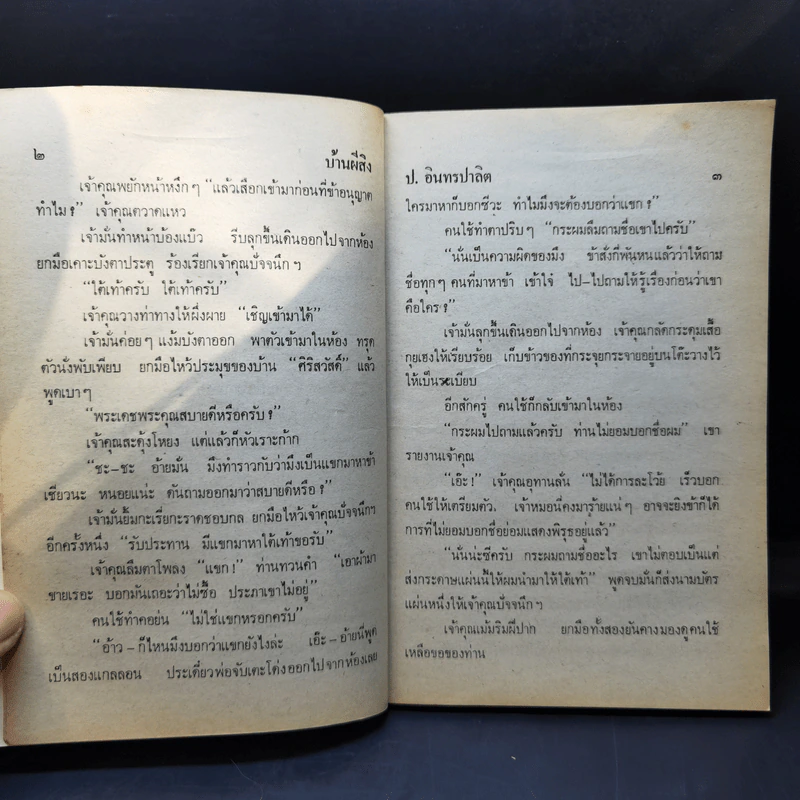 ๒
บ้านผีสิง
เจ้าคุณพยักหน้าหงึกๆ “แล้วเสือกเข้ามาก่อนที่ข้าอนุญาต
ทำไม?” เจ้าคุณตวาดแหว
เจ้ามั่นทำหน้าบ้องแบ๊ว รีบลุกขึ้นเดินออกไปจากห้อง
ยกมือเคาะบังตาประตู ร้องเรียกเจ้าคุณปัจจนึกฯ
“ใต้เท้าครับ ใต้เท้าครับ”
เจ้าคุณวางท่าทางให้ผึ่งผาย “เชิญเข้ามาได้”
เจ้ามั่นค่อยๆ แง้มบังตาออก พาตัวเข้ามาในห้อง ทรุด
ตัวนั่งพับเพียบ ยกมือไหว้ประมุขของบ้าน “ศิริสวัสดิ์” แล้ว
พูดเบาๆ
“พระเดชพระคุณสบายดีหรือครับ?”
เจ้าคุณสะดุ้งโหยง แต่แล้วก็หัวเราะก้าก
“ชะ–ชะ อ้ายมั่น มึงทำราวกับว่ามึงเป็นแขกมาหาข้า
เชียวนะ หนอยแน่ะ ดันถามออกมาว่าสบายดีหรือ?”
เจ้ามั่นยิ้มกะเรี่ยกะราดชอบกล ยกมือไหว้เจ้าคุณปัจจนึกฯ
อีกครั้งหนึ่ง “รับประทาน มีแขกมาหาใต้เท้าขอรับ”
เจ้าคุณลืมตาโพลง “แขก!” ท่านทวนคำ “เอาผ้ามา
ขายเรอะ บอกมันเถอะว่าไม่ซื้อ ประภาเขาไม่อยู่”
คนใช้ทำคอย่น “ไม่ใช่แขกหรอกครับ”
“อ้าว – ก็ไหนมึงบอกว่าแขกยังไงล่ะ เอ๊ะ – อ้ายนี่พูด
เป็นสองแกลลอน ประเดี๋ยวพ่อจับเตะโด่งออกไปจากห้องเลย
ป. อินทรปาลิต
๓
ใครมาหาก็บอกซีวะ ทำไมมึงจะต้องบอกว่าแขก?”
คนใช้ทำตาปริบๆ “กระผมลืมถามชื่อเขาไปครับ”
“นั่นเป็นความผิดของมึง ข้าสั่งกี่พันหนแล้วว่าให้ถาม
ชื่อทุกๆ คนที่มาหาข้า เข้าใจ๋ ไป–ไปถามให้รู้เรื่องก่อนว่าเขา
คือใคร?”
เจ้ามั่นลุกขึ้นเดินออกไปจากห้อง เจ้าคุณกลัดกระดุมเสื้อ
กุยเฮงให้เรียบร้อย เก็บข้าวของที่กระจุยกระจายอยู่บนโต๊ะวางไว้
ให้เป็นระเบียบ
อีกสักครู่ คนใช้ก็กลับเข้ามาในห้อง
“กระผมไปถามแล้วครับ ท่านไม่ยอมบอกชื่อผม” เขา
รายงานเจ้าคุณ
“เอ๊ะ!” เจ้าคุณอุทานลั่น “ไม่ได้การละโว้ย เร็วบอก
คนใช้ให้เตรียมตัว. เจ้าหมอนี่คงมาร้ายแน่ๆ อาจจะยิงข้าก็ได้
การที่ไม่ยอมบอกชื่อย่อมแสดงพิรุธอยู่แล้ว”
“นั่นน่ะซีครับ กระผมถามชื่ออะไร เขาไม่ตอบเป็นแต่
ส่งกระดาษแผ่นนี้ให้ผมนำมาให้ใต้เท้า” พูดจบมั่นก็ส่งนามบัตร
แผ่นหนึ่งให้เจ้าคุณปัจจนึกฯ
เจ้าคุณเม้มริมฝีปาก ยกมือทั้งสองยันคางมองดูคนใช้
เหลือขอของท่าน